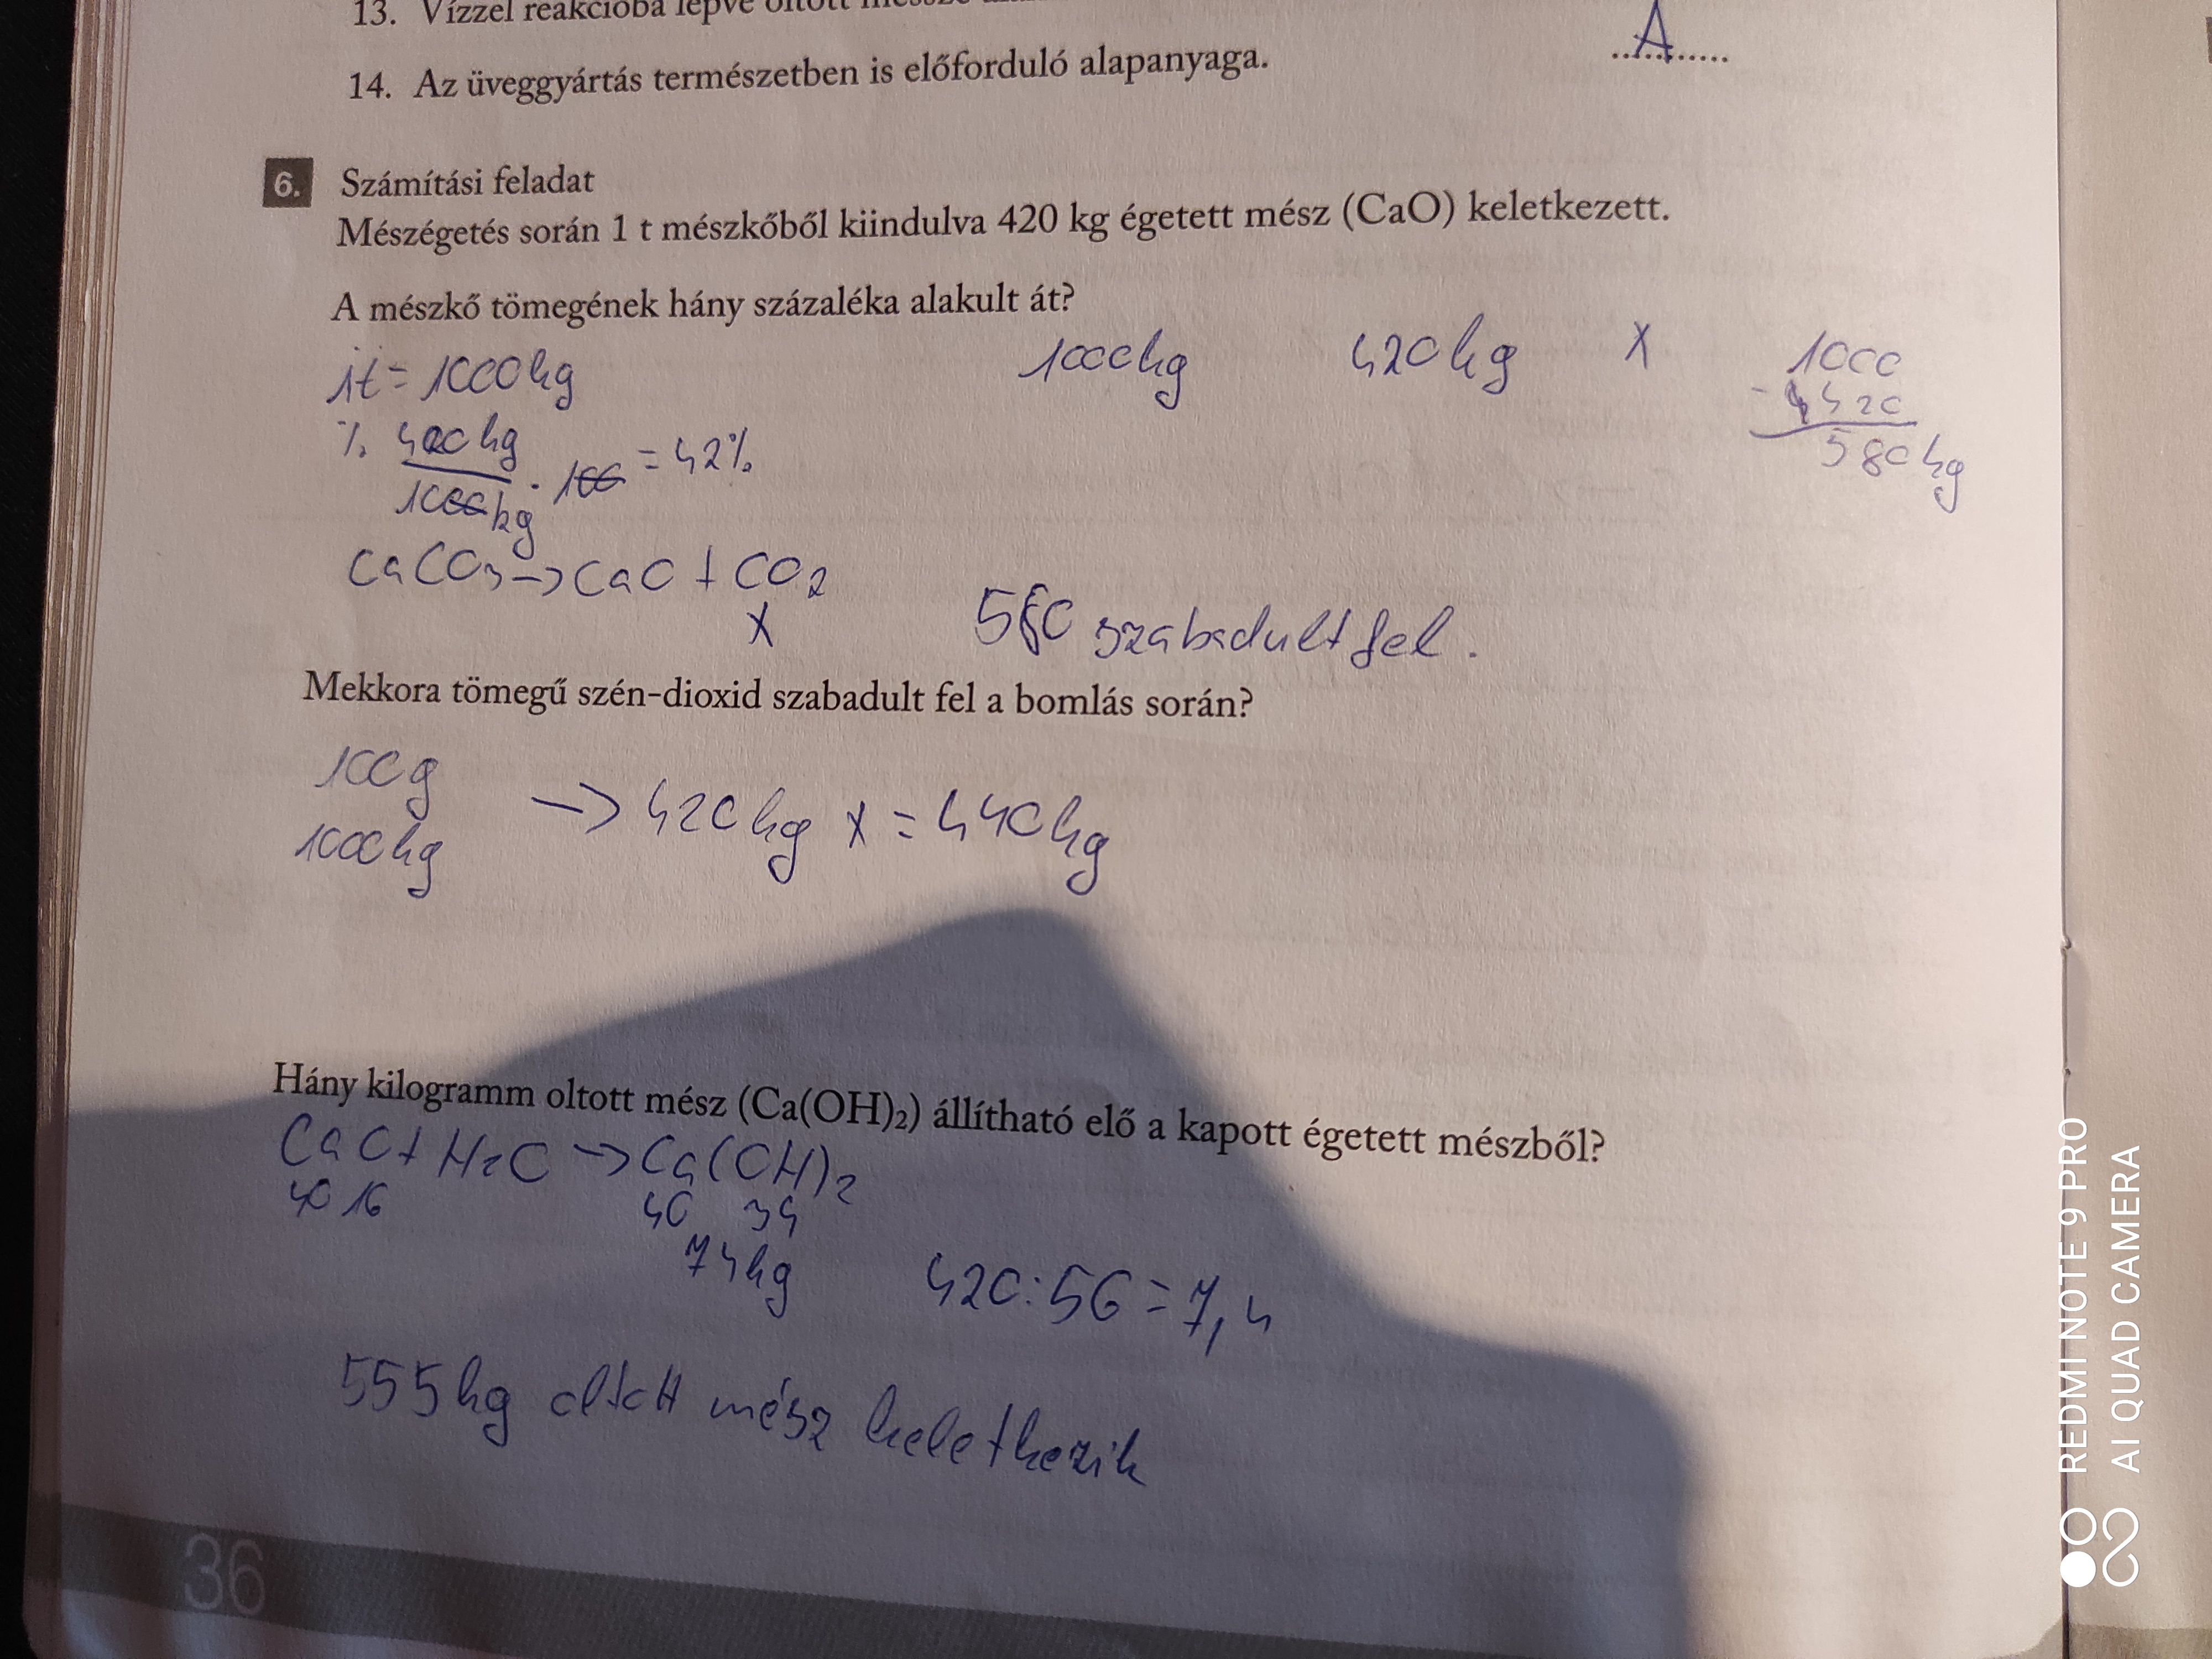 13. Vízzel reakcióba lépve oltott
14. Az üveggyártás természetben is előforduló alapanyaga.
A
6. Számítási feladat
Mészégetés során 1 t mészkőből kiindulva 420 kg égetett mész (CaO) keletkezett.
A mészkő tömegének hány százaléka alakult át?
1t = 1000kg 1000kg 420kg x 1000
- 420
580kg
% 420kg
1000kg · 100 = 42%
CaCO3 -> CaO + CO2
x 580 szabadult fel.
Mekkora tömegű szén-dioxid szabadult fel a bomlás során?
100g
1000kg -> 420kg x = 440kg
Hány kilogramm oltott mész (Ca(OH)₂) állítható elő a kapott égetett mészből?
CaO + H2O -> Ca(OH)2
40 16 40 34
74kg 420:56 = 7,4
555kg oltott mész keletkezik
36
REDMI NOTE 9 PRO
AI QUAD CAMERA